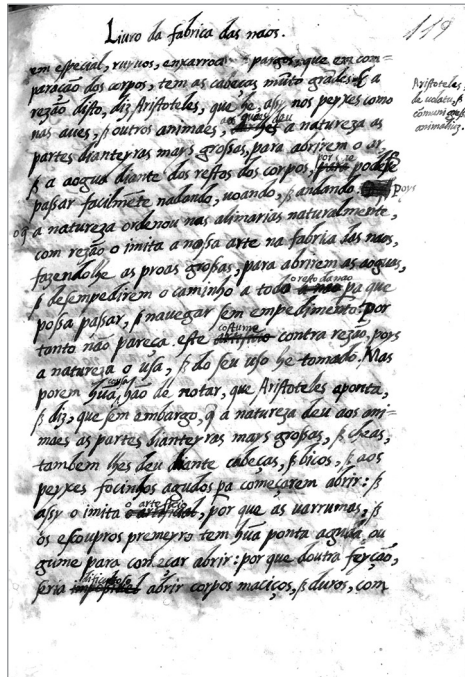 Liuro da fabrica das naos.
119
em especial, ruiuos, enxarrocos pargos, que em com=
paração dos corpos, tem as cabeças muito grãdes. E a
rezão disto, diz Aristoteles, que he, assy nos peyxes como
nas aues, & outros animaes, aos quaes deu a natureza as
partes dianteyras mays grossas, para abrirem o ar,
& a aogua diante dos restos dos corpos, por se podesse
passar facilmẽte nadando, uoando, & andando. pors
o q̃ a natureza ordenou nas alimarias naturalmente,
com rezão o imita a nossa arte na fabrica das naos,
fazendolhe as proas grossas, para abrirem as aoguas,
& desempedirem o caminho a toda o resto da nao pa que
possa passar, & nauegar sem empedimento. Por
tanto não pareça, este costume contra rezão, poys
a natureza o usa, & do seu uso he tomado. Mas
porem hũa cousa hão de notar, que Aristoteles aponta,
& diz, que sem embargo, q̃ a natureza deu aos ani=
maes as partes dianteyras mays grossas, & cheas,
tambem lhes deu diante cabeças, & bicos, & aos
peyxes focinhos agudos pa começarem abrir: &
assy o imita o artificio, por que as uerrumas, &
os escoupros premeyro tem hũa ponta aguda, ou
gume para começar abrir: por que doutra feyção,
seria dificultoso abrir corpos maciços, & duros, com
Aristoteles,
de uolatu, &
cõmuni gressu
animaliũ.